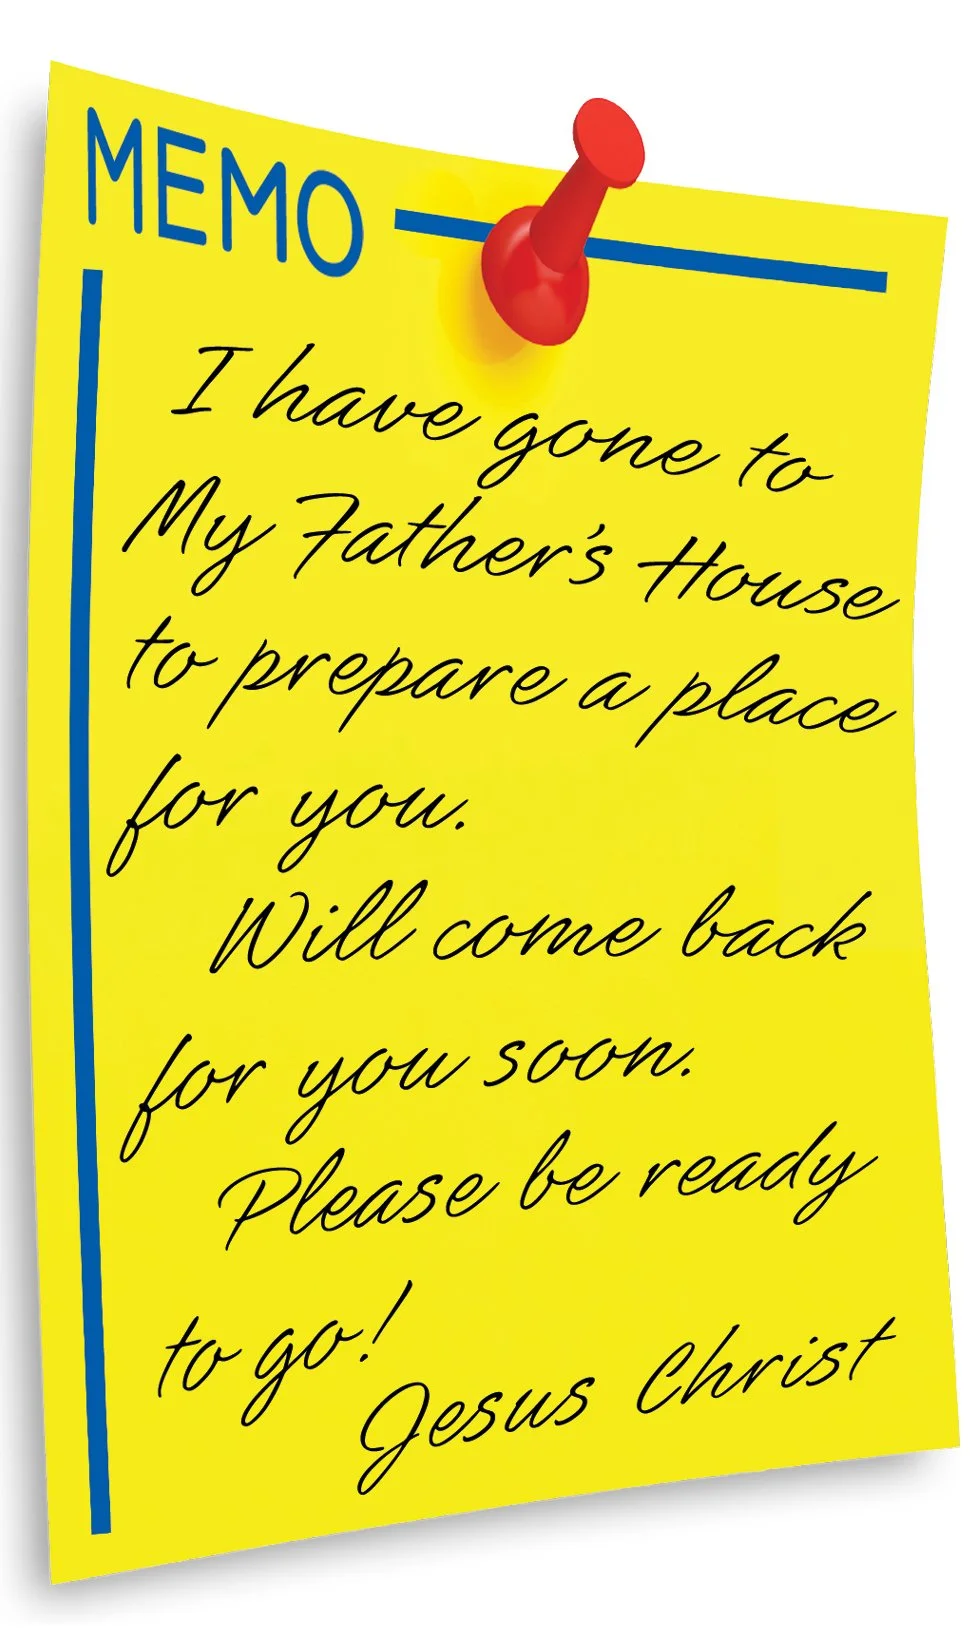 MEMO
I have gone to
My Father's House
to prepare a place
for you.
Will come back
for you soon.
Please be ready
to go!
Jesus Christ